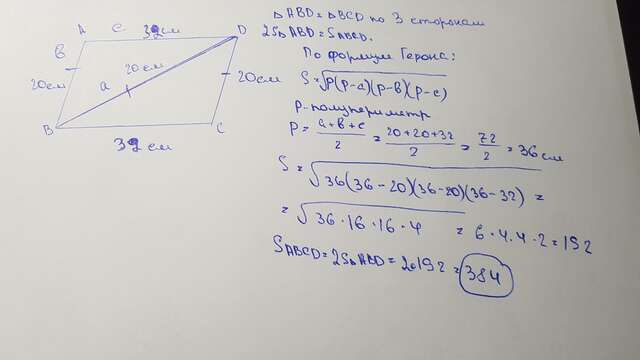 A c 32см D
В
20см а 20см 20см
В С
32см
△ABD = △BCD по 3 сторонам
2S△ABD = SABCD.
По формуле Герона:
S = √p(p-a)(p-b)(p-c)
P-полупериметр
P = a+b+c/2 = 20+20+32/2 = 72/2 = 36 см
S = √36(36-20)(36-20)(36-32) =
= √36·16·16·4 = 6·4·4·2 = 192
SABCD = 2S△ABD = 2·192 = 384